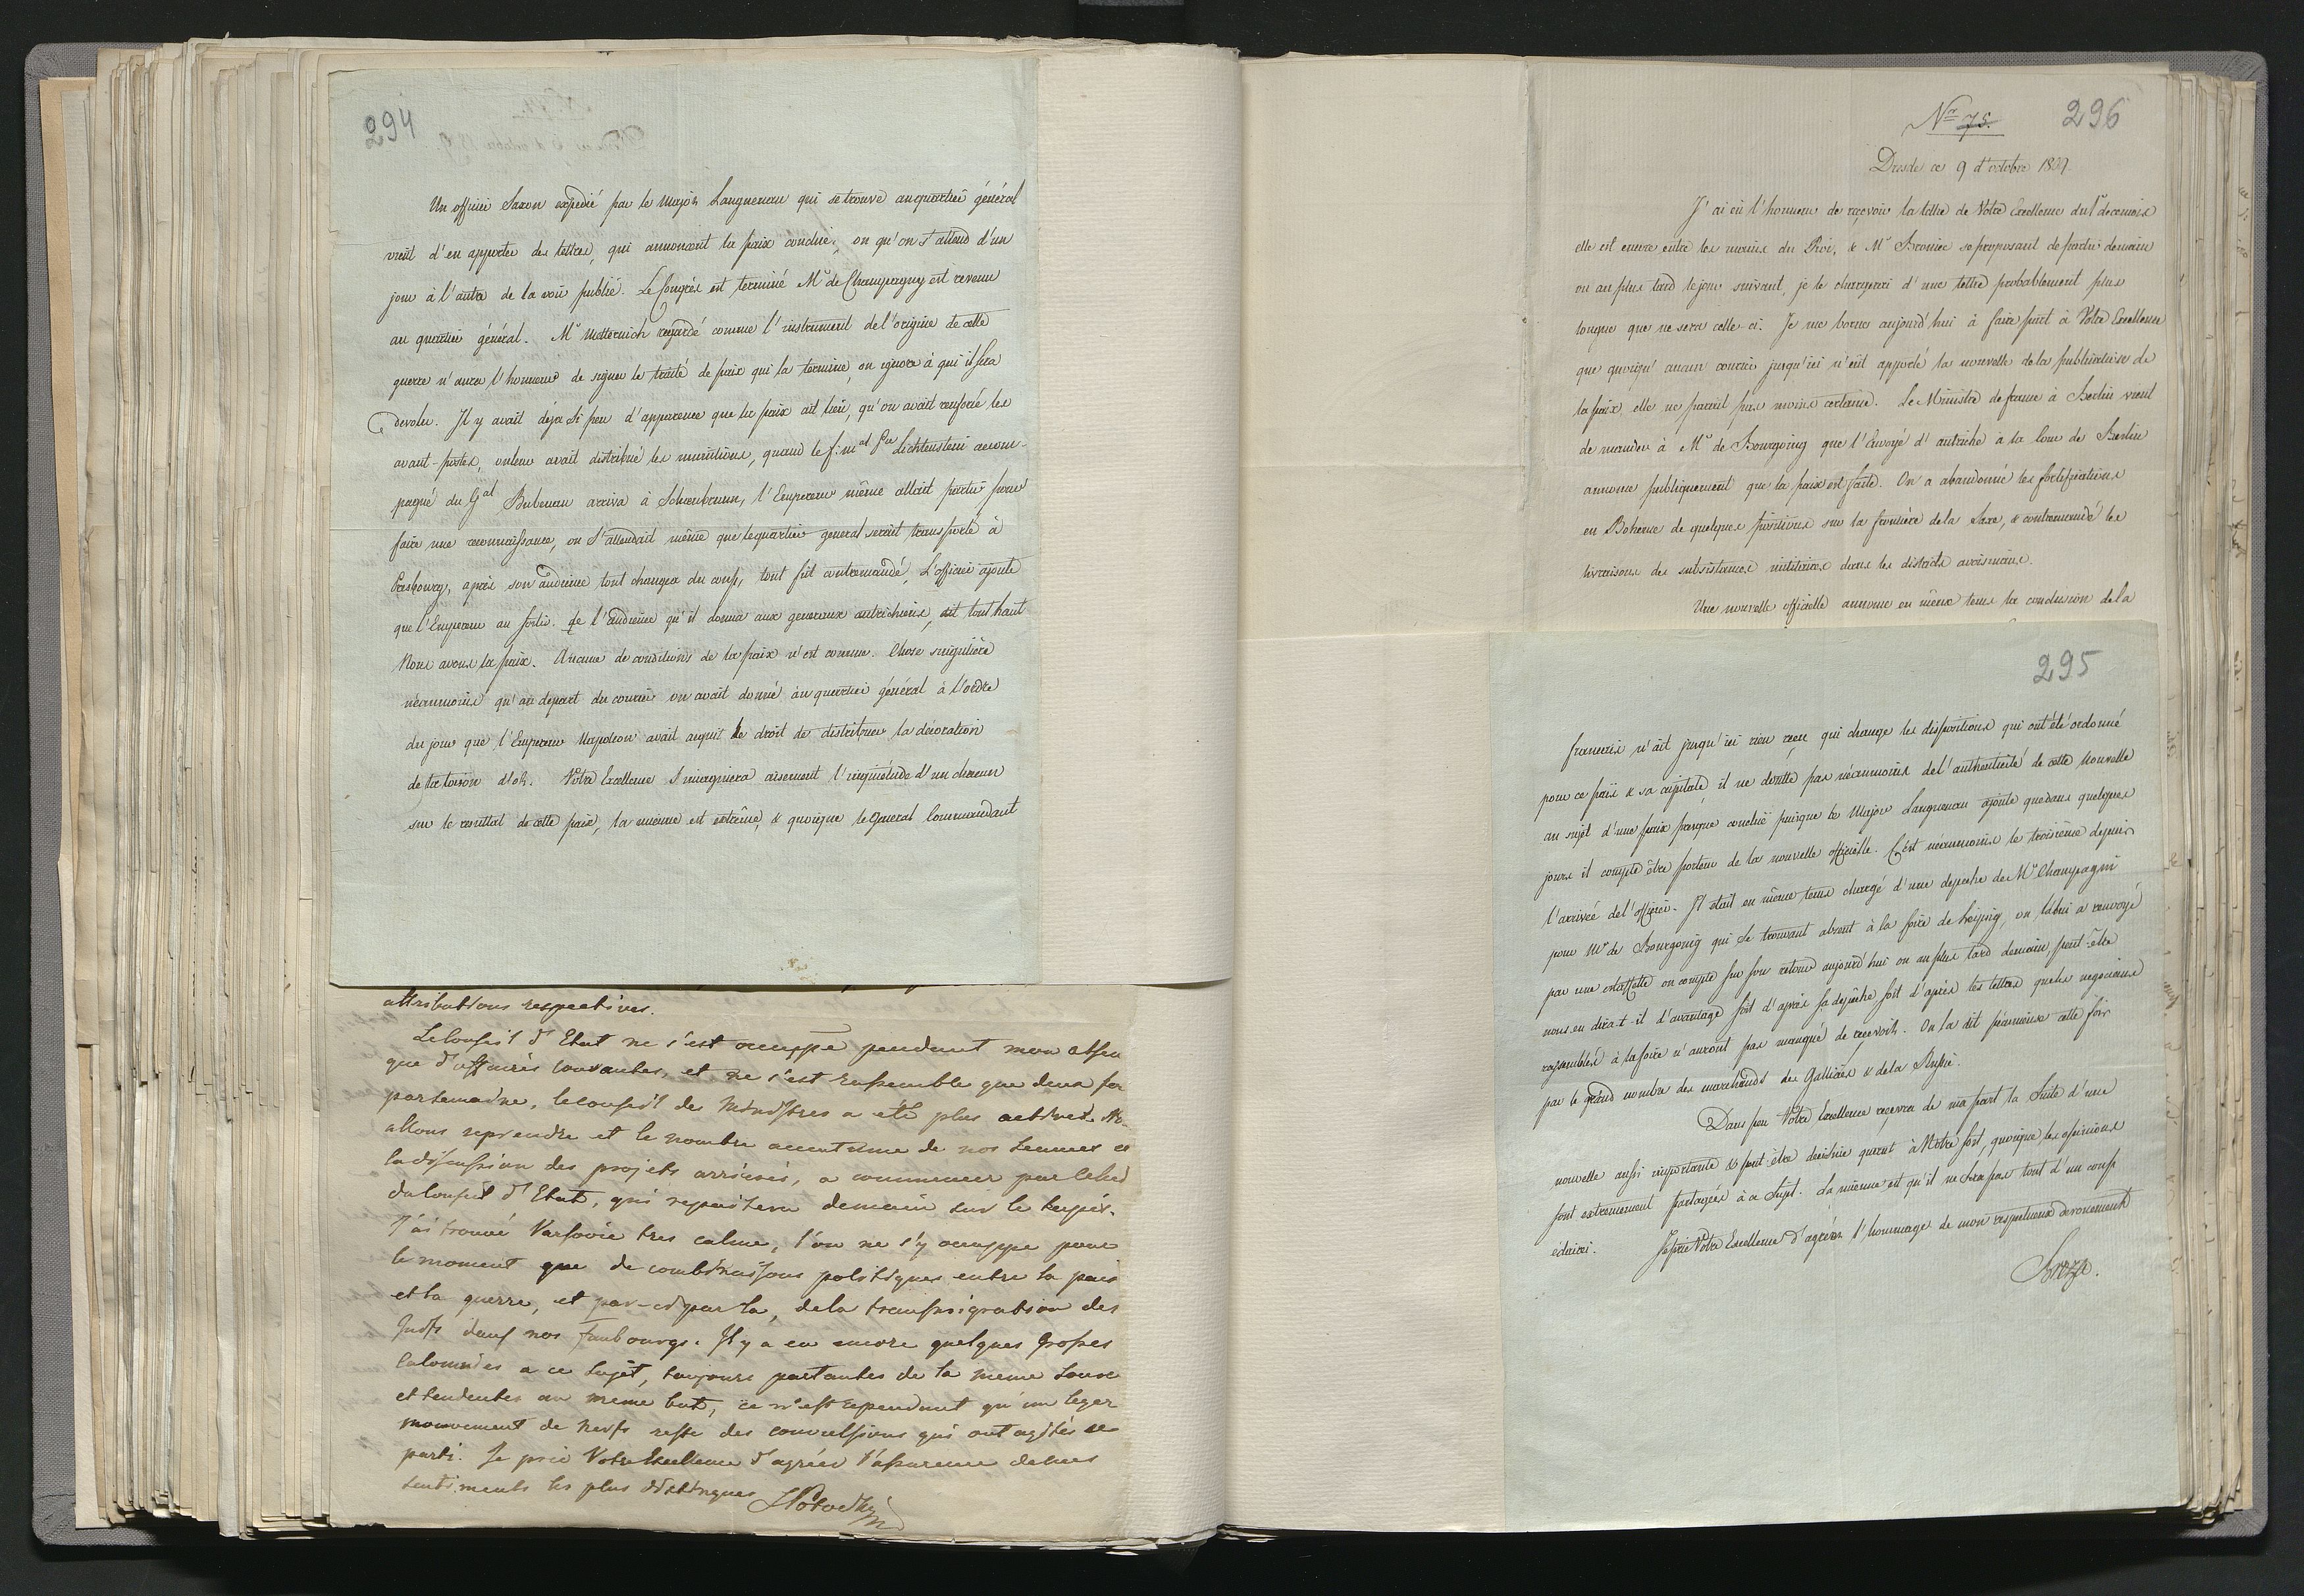 294
Un officier Saxon expedié par le Major Langnenau qui se trouve au quartier général
vient d'en apporter des lettres, qui annoncent la paix conclue, ou qu'on s'attend d'un
jour à l'autre de la voir publié. Le Congrès est terminé Mr de Champagny est revenu
au quartier général. Mr Metternich regardé comme l'instrument de l'origine de cette
guerre n'aura l'honneur de signer le traité de paix qui la termine, on ignore à qui il sera
devolu. Il y avait déja si peu d'apparence que la paix ait lieu, qu'on avait renforcé les
avant-postes, on avait distribué les munitions, quand le f: mal Pce Lichtenstein accom-
pagné du Gal Bubenau arriva à Schoenbrunn, l'Empereur même allait partir pour
faire une reconnaissance, on s'attendait même que le quartier general serait transporté à
Presbourg, après son audience tout changea du coup, tout fut contremandé, L'officier ajoute
que l'Empereur au sortir de l'audience qu'il donna aux generaux autrichiens, dit tout haut
Nous avons la paix. Aucune de conditions de la paix n'est connue. Chose singulière
néanmoins qu'au depart du courier on avait donné au quartier général à l'ordre
du jour que l'Empereur Napoleon avait acquit le droit de distribuer la décoration
de la toison d'or. Votre Excellence s'imaginera aisement l'inquiétude d'un chacun
sur le resultat de cette paix, la mienne est extrême, & quoique le General Commandant
attributions respectives.
Le Conseil d'Etat ne s'est occuppé pendant mon absen
que d'affaires courantes, et ne s'est rassemblé que deux fois
par semaine, le conseil des Ministres a été plus actives. No
allons reprendre et le nombre accoutumé de nos seances et
la discussion des projets arriérés, a commencer par celui
du Conseil d'Etat, qui reparaitera demain sur le tapis.
J'ai trouvé Varsovie tres calme, l'on ne s'y occuppe pour
le moment que de combinaisons politiques entre la paix
et la guerre, et par-ci par la, de la transmigration des
Juifs dans nos faubourgs. Il y a eu encore quelques grosses
Calomnies a ce sujet, toujours partantes de la meme source
et tendentes au même but, ce n'est cependant qu'un leger
mouvement de nerfs reste des convulsions qui ont agités ce
parti. Je prie Votre Excellence d'agréer l'assurance de mes
sentiments les plus distingues
SPotocki
Nro 75.
296
Dresde ce 9 d'octobre 1809.
J'ai eû l'honneur de reçevoir la lettre de Votre Excellence du 1r de ce mois
elle est encore entre les mains du Roi, & Mr Bronice se proposant de partir demain
ou au plus tard le jour suivant, je le chargerai d'une lettre probablement plus
longue que ne sera celle-ci. Je me borne aujourd'hui à faire part à Votre Excellence
que quoiqu' aucun courier jusqu'ici n'eut apporté la nouvelle de la publication de
la paix, elle ne parait pas moins certaine. Le Ministre de france à Berlin vient
de mander à Mr de Bourgoing que l'Envoyé d'autriche à la Cour de Berlin
annonce publiquement que la paix est faite. On a abandonné les fortifications
en Boheme de quelques positions sur la frontière de la Saxe, & contremandé les
livraisons des subsistances militaires dans les districts avoisinans.
Une nouvelle officielle annonce en même tems la conclusion de la
295
francais n'ait jusqu'ici rien reçu qui change les dispositions qui ont été ordonné
pour ce païs & sa capitale, il ne doutte pas néanmoins de l'authenticité de cette nouvelle
au sujet d'une paix presque conclue puisque le Major Langnenau ajoute que dans quelques
jours il compte être porteur de la nouvelle officielle. C'est néanmoins le troisième depuis
l'arrivée de l'officier. Il était en même tems chargé d'une depeche de Mr Champagni
pour Mr de Bourgoing qui se trouvant absent à la foire de Leipsig, on la lui a renvoyé
par une estaffette on compte sur son retour aujourd'hui ou au plus tard demain, peut-être
nous en dira-t-il d'avantage soit d'après sa depêche soit d'après les lettres que les negocians
rassemblés à la foire n'auront pas manqué de recevoir. On la dit fameuse cette fois
par le grand nombre des marchands de Gallicies & de la Russie.
Dans peu Votre Excellence reçevra de ma part la suite d'une
nouvelle aussi importante & peut-être decisive quant à Notre sort, quoique les opinions
sont extremement partagées à ce sujet. La mienne est qu'il ne sera pas tout d'un coup
éclairci. Je prie Votre Excellence d'agréer l'hommage de mon respectueux devouement
Breza.